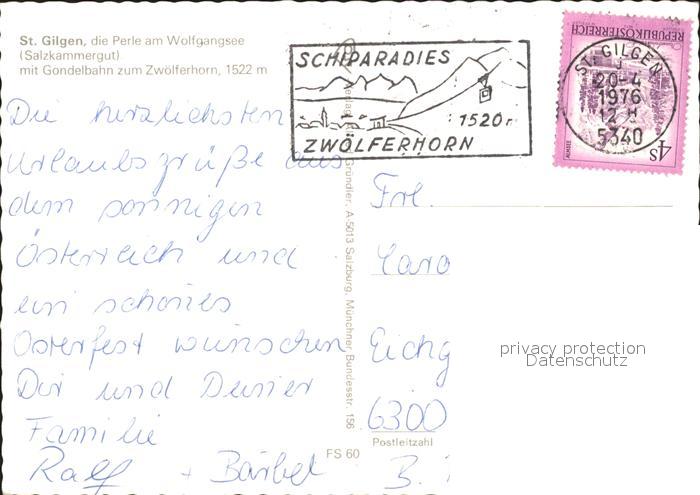 St. Gilgen, die Perle am Wolfgangsee
(Salzkammergut)
mit Gondelbahn zum Zwölferhorn, 1522 m
SCHIPARADIES
1520
ZWÖLFERHORN
REPUBLIK ÖSTERREICH
ALMSEE
4S
ST. GILGEN
20-4
1976
12 H
5340
Die herzlichsten
Urlaubsgrüße aus
dem sonnigen
Österreich und
ein schönes
Osterfest wünschen
Dir und Deiner
Familie
Ralf + Bärbel
Gründler, A-5013 Salzburg, Münchner Bundesstr. 156
FS 60
Frl.
Caro
Eichg
6300
Postleitzahl
B.
privacy protection
Datenschutz